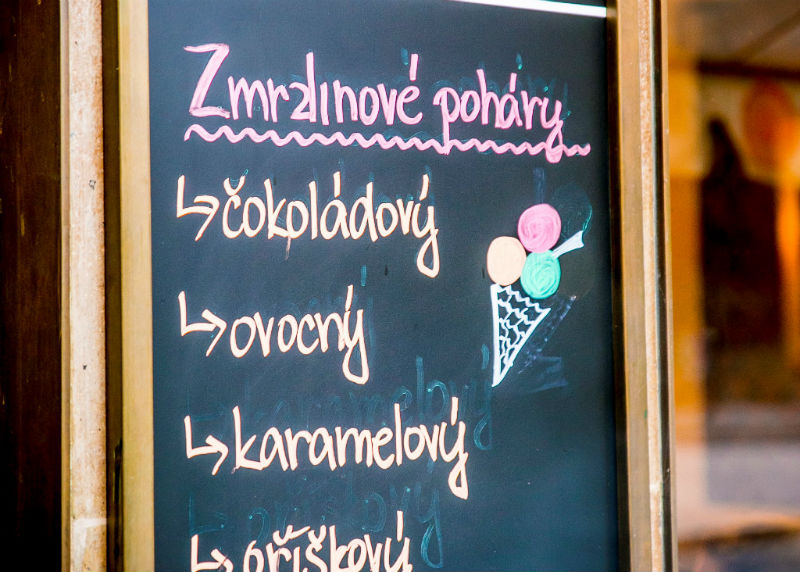 Zmrzlinové poháry
čokoládový
ovocný
karamelový
oříškový